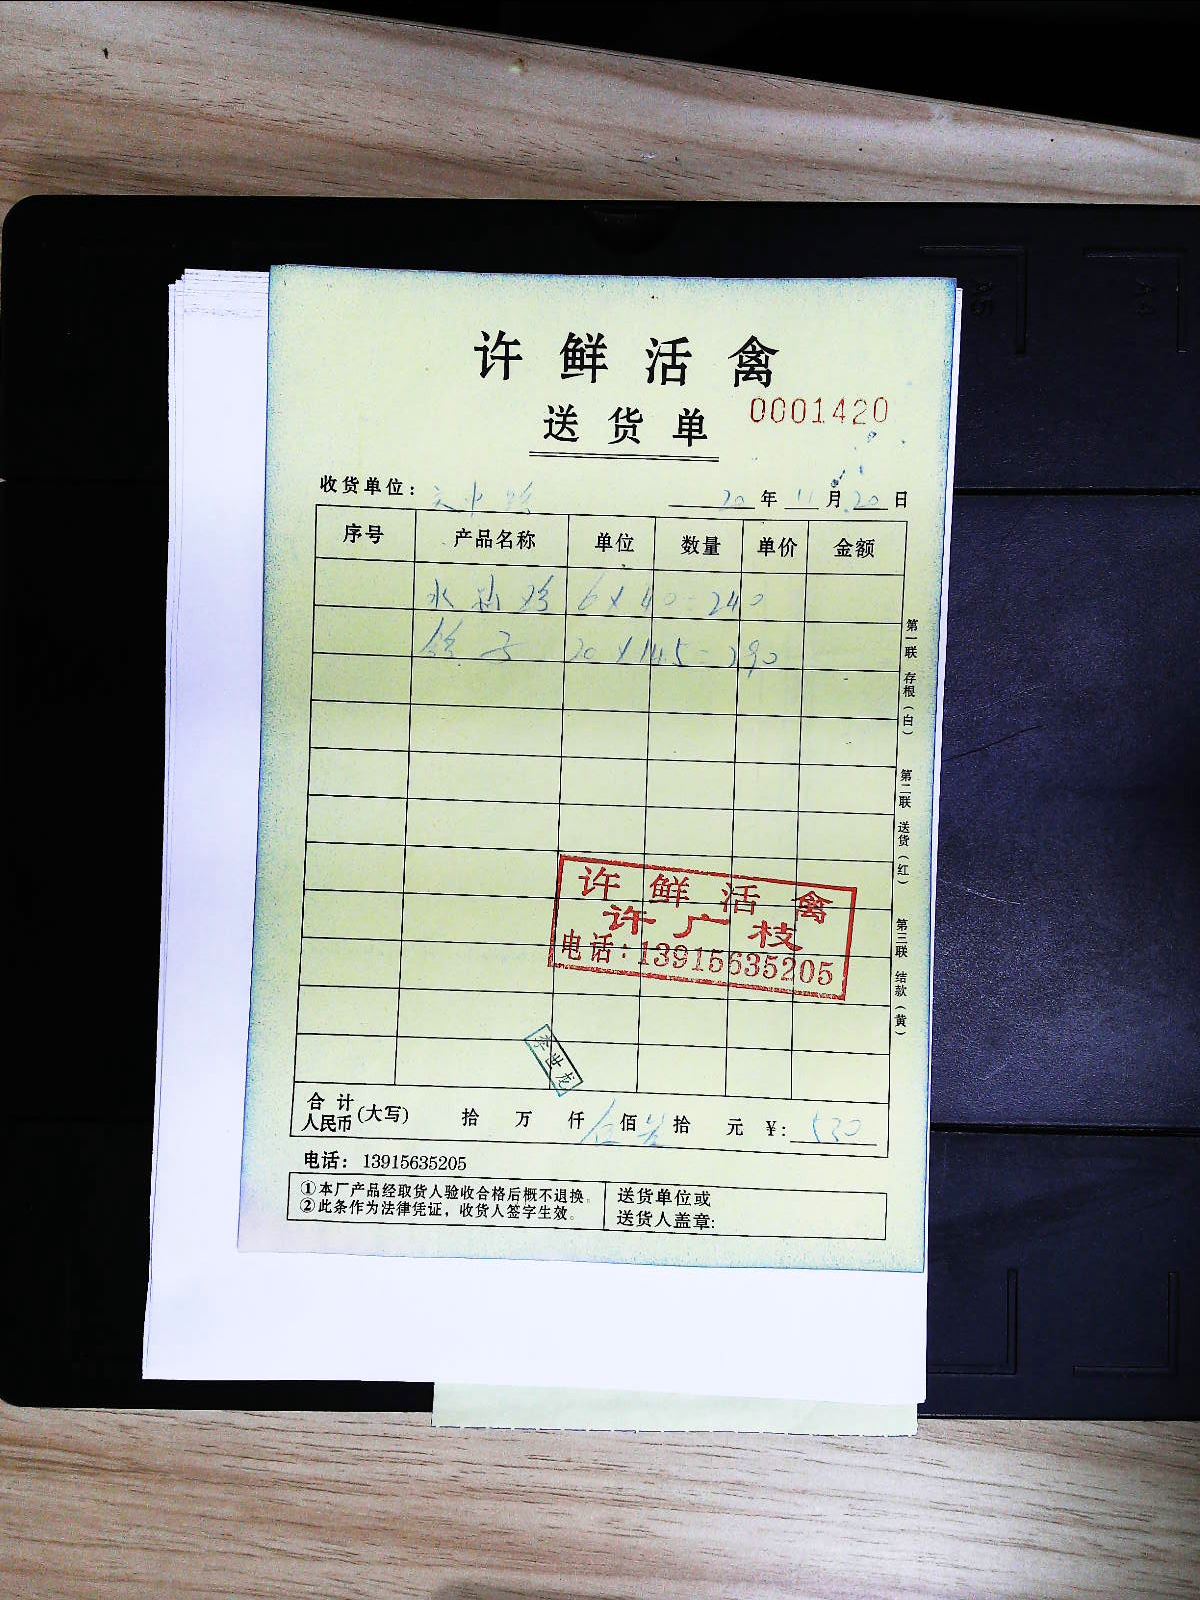 许鲜活禽
送货单 0001420
收货单位： 20年11月20日
序号 产品名称 单位 数量 单价 金额
6×40=240
鸽子 20×14.5=290
第一联 存根（白）
第二联 送货（红）
第三联 结款（黄）
许鲜活禽
许广枝
电话：13915635205
李世龙
合计人民币(大写) 拾 万 仟 伍佰 叁拾 元 ¥: 530
电话： 13915635205
①本厂产品经取货人验收合格后概不退换。
②此条作为法律凭证，收货人签字生效。
送货单位或
送货人盖章:
A5
A4